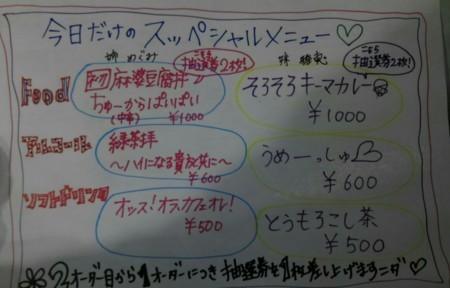 今日だけのスッペシャルメニュー♡
こちら抽選券2枚!
こちら抽選券2枚!
Food
麻婆豆腐丼
ちゅーからぱいぱい
(中辛) ¥1000
そろそろキーマカレー
¥1000
アルコール
緑茶拝
〜ハイになる貴友共に〜
¥600
うめーっしゅ
¥600
ソフトドリンク
オッス!オラ、カフェオレ!
¥500
とうもろこし茶
¥500
2オーダー目から1オーダーにつき抽選券を1枚差し上げますニダ♡